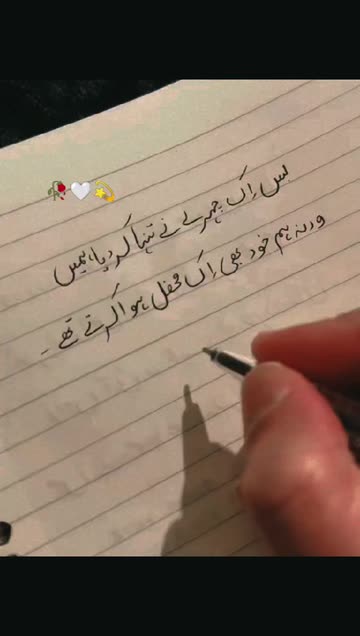 بس اِک چہرے نے تنہا کر دیا ہمیں
ورنہ ہم خود بھی اِک محفل ہوا کرتے تھے ۔